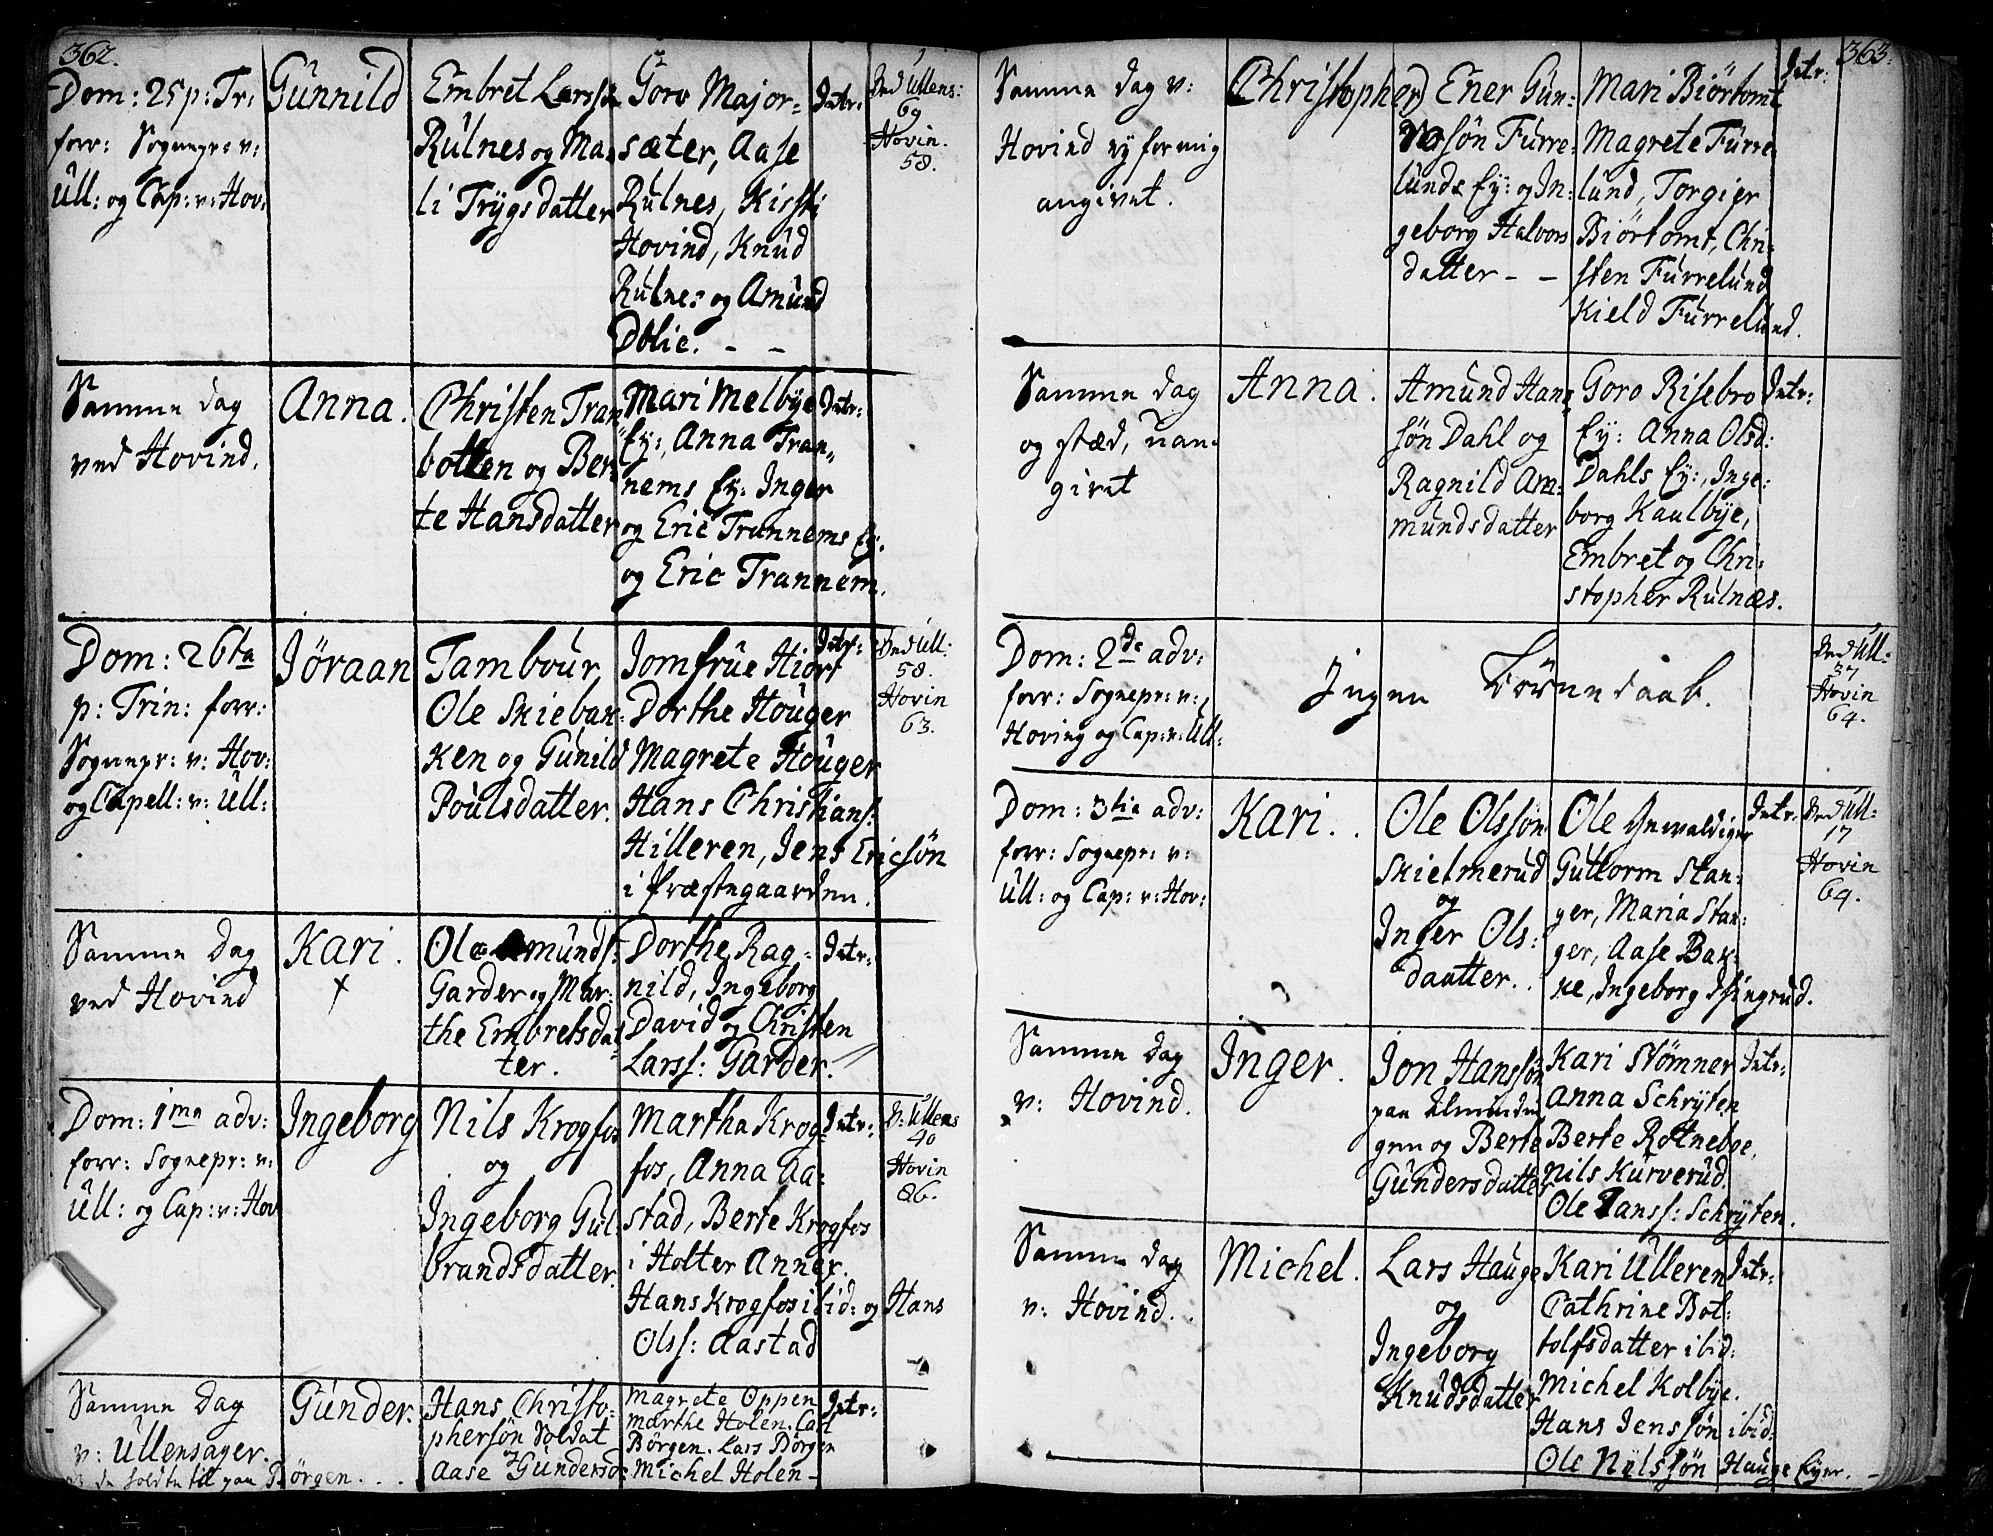 362.
Dom: 25 p: Tr:
forr: Sognepr: v:
Ull: og Cap: v: Hov:
Gunnild
Embret Larssøn
Rulnes og Ma-
li Trygsdatter
Goro Major-
sæter, Aase
Rulnes, Kisti
Hovind, Knud
Rulnes og Amund
Dølie. - -
Intr:
Ved Ullens:
69
Hovin.
58.
Samme dag
ved Hovind.
Anna.
Christen Tran
botten og Ber-
te Hansdatter
Mari Melbye
Ey:, Anna Tran-
nems Ey: Inger
og Eric Trannems Ey:
og Eric Trannem.
Intr:
Dom: 26ta
p: Trin: forr:
Sognepr: v: Hov:
og Capell: v: Ull:
Jöraan
Tambour,
Ole Skiebak-
ken og Gunild
Poulsdatter.
Jomfrue Hiort
Dorthe Houger
Magrete Houger
Hans Christians:
Hilleren, Jens Ericsön
i Præstegaarden.
Intr:
Ved Ull:
58.
Hovin
63.
Samme Dag
ved Hovind
Kari.
x
Ole Amunds:
Garder og Mar-
the Embretsdat-
ter.
Dorthe, Rag-
nild, Ingeborg
David og Christen
Larss: Garder.
Intr:
Dom: 1ma adv:
forr: Sognepr: v:
Ull: og Cap: v: Hov
Ingeborg
Nils Krogfos
og
Ingeborg Gul-
brandsdatter.
Martha Krog-
fos, Anna Aa-
stad, Berte Krogfos
i Holter Annex.
Hans Krogfos ibid: og Hans
Olss: Aastad
Intr:
V: Ullens
40
Hovin
86.
Samme Dag
v: Ullensager.
holdte til paa Börgen. . .
Gunder.
Hans Christo-
phersön Soldat
og
Aase Gundersd:
Magrete Oppen
Marthe Holen. Carl
Börgen. Lars Börgen
Michel Holen -
Intr:
363.
Samme dag v:
Hovind ey for mig
angivet.
Christopher
Ener Gun-
versøn Furre-
lunds Ey: og In-
geborg Halvors
datter - -
Mari Biörtomt
Magrete Furre-
lund, Torgier
Biörtomt, Chri-
sten Furrelund
Kield Furrelund.
Intr:
Samme dag
og stæd, uan-
givet
Anna.
Amund Han-
søn Dahl og
Ragnild Am-
mundsdatter
Goro Risebro
Ey: Anna Olsd:
Dahls Ey:, Inge-
borg Kaulbye,
Embret og Chri-
stopher Rulnæs.
Intr:
Dom: 2de adv:
forr: Sognepr: v:
Hoving og Cap: v: Ull:
Ingen Börnedaab.
Ved Ull:
37
Hovin
64.
Dom: 3tie adv:
forr: Sognepr: v:
Ull: og Cap: v: Hov:
Kari.
Ole Olssøn
Skielmerud
og
Inger Ols-
daatter.
Ole Gewaldiger
Guttorm Stan-
ger, Maria Stan-
ger, Aase Bak-
ke, Ingeborg Isingrud.
Intr.
Ved Ull:
17
Hovin
64.
Samme dag
v: Hovind.
Inger.
Jon Hanssøn
paa Almindin
gen og Berte
Gundersdatter
Kari Stømner
Anna Schryten
Berte Rotneboe,
Nils Kurverud.
Ole Hanss: Schryten.
Intr:
Samme dag
v: Hovind.
Michel.
Lars Hauge
og
Ingeborg
Knudsdatter
Kari Ulleren
Cathrine Bot-
tolfsdatter ibid:
Michel Kolbye.
Hans Jenssøn ibid:
Ole Nilssøn Hauge Eyer. -
Intr: